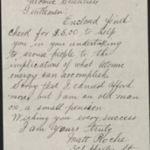 Atomic Scientists
Gentlemen:
Enclosed find
check for $5.00 to help
you in your undertaking
to arouse people to the
implications of what Atomic
energy can accomplish.
Sorry that I cannot afford
more, but I am an old man
on a small pension
Wishing you every success
I am Yours Truly
Matt Roche